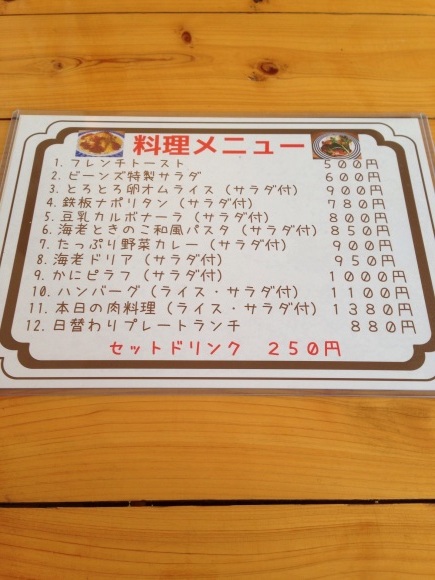 料理メニュー
1. フレンチトースト 500円
2. ビーンズ特製サラダ 600円
3. とろとろ卵オムライス（サラダ付） 900円
4. 鉄板ナポリタン（サラダ付） 780円
5. 豆乳カルボナーラ（サラダ付） 800円
6. 海老ときのこ和風パスタ（サラダ付） 850円
7. たっぷり野菜カレー（サラダ付） 900円
8. 海老ドリア（サラダ付） 950円
9. かにピラフ（サラダ付） 1000円
10. ハンバーグ（ライス・サラダ付） 1100円
11. 本日の肉料理（ライス・サラダ付） 1380円
12. 日替わりプレートランチ 880円
セットドリンク 250円